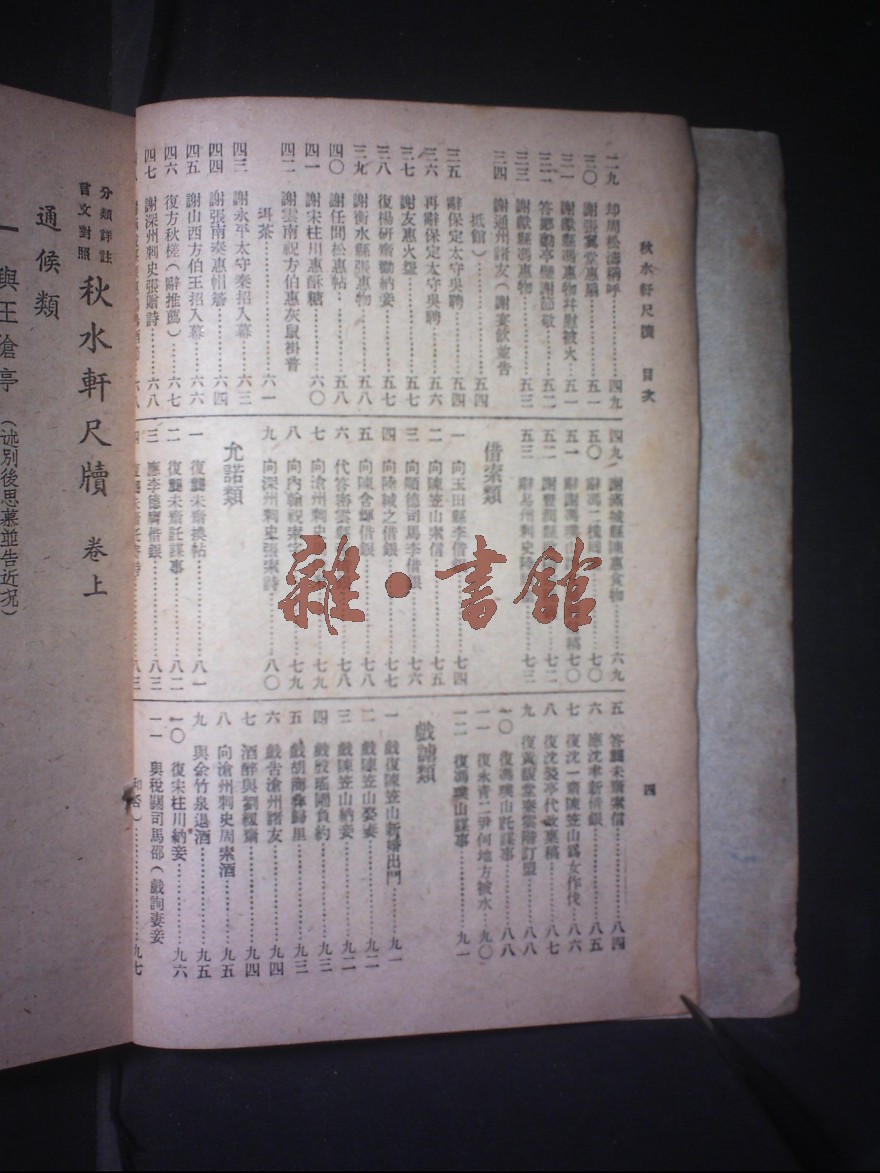 秋水軒尺牘 目次
四
二九 却周松濤稱呼……四九
三〇 謝張翼堂惠扇……五一
三一 謝獻縣馮惠物幷慰被火……五一
謝獻縣馮惠物……五三
三四 謝通州諸友(謝宴飲並告
抵館)……五四
三五 辭保定太守吳聘……五四
三六 再辭保定太守吳聘……五六
三七 謝友惠火盌……五七
三八 復楊硏齋勸納妾……五七
三九 謝衡水縣張惠物……五八
四〇 謝任間松惠帖……五八
四一 謝宋柱川惠酥糖……六〇
四二 謝雲南祝方伯惠灰鼠褂普
洱茶……六一
四三 謝永平太守秦招入幕……六三
四四 謝張南泰惠帽簷……六四
四五 謝山西方伯王招入幕……六六
四六 復方秋槎(辭推薦)……六七
四七 謝深州刺史張贈詩……六八
四九 謝滿城縣陳惠食物……六九
五〇 辭馮……七〇
五一 辭謝馮……稿七〇
五二 謝豐潤縣……七二
五三 辭易州刺史……七三
借索類
一 向玉田縣李借……七四
二 向陳笠山索信……七五
三 向順德司馬李借銀……七六
四 向陸緘之借銀……七七
五 向陳含輝借銀……七八
六 代答密雲縣……七八
七 向滄州刺史……七九
八 向內翰祝索……七九
九 向深州刺史張索詩……八〇
允諾類
一 復龔未齋換帖……八一
二 復龔未齋託謀事……八二
三 應李德齋借銀……八三
四 復龔未齋託……八三
五 答龔未齋索信……八四
六 應沈聿新借銀……八五
七 復沈一齋陳笠山爲女作伐……八六
八 復沈裂亭代改稟稿……八七
九 復黃馥堂秦雲階訂盟……八八
一〇 復馮璞山託謀事……八八
一一 復永青二尹何地方被水……九〇
一二 復馮璞山謀事……九一
戲謔類
一 戲復陳笠山新婚出門……九一
二 戲陳笠山娶妻……九二
三 戲陳笠山納妾……九二
四 戲殷瑤圃負約……九三
五 戲胡海……歸里……九三
六 戲告滄州諸友……九四
七 酒醉與劉極齋……九四
八 向滄州刺史周索酒……九五
九 與余竹泉退酒……九五
一〇 復宋柱川納妾……九六
一一 與稅關司馬邵(戲詢妻妾
和否)……九七
分類詳註
言文對照
秋水軒尺牘 卷上
通候類
一 與王滄亭 (述別後思慕並告近況)